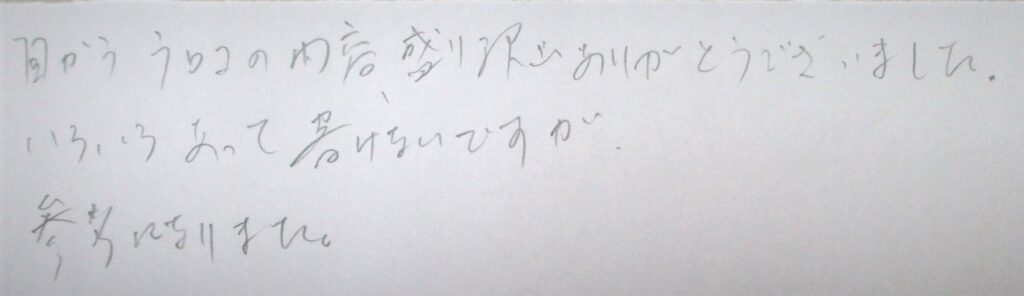 目からウロコの内容盛り沢山ありがとうございました。
いろいろあって書けないですが、
参考になりました。